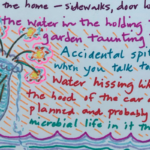 the home — sidewalks, door
the water in the holding
garden taunting
Accidental spit
when you talk to
water hissing
the hood of the car
planned. and probably
microbial life in it